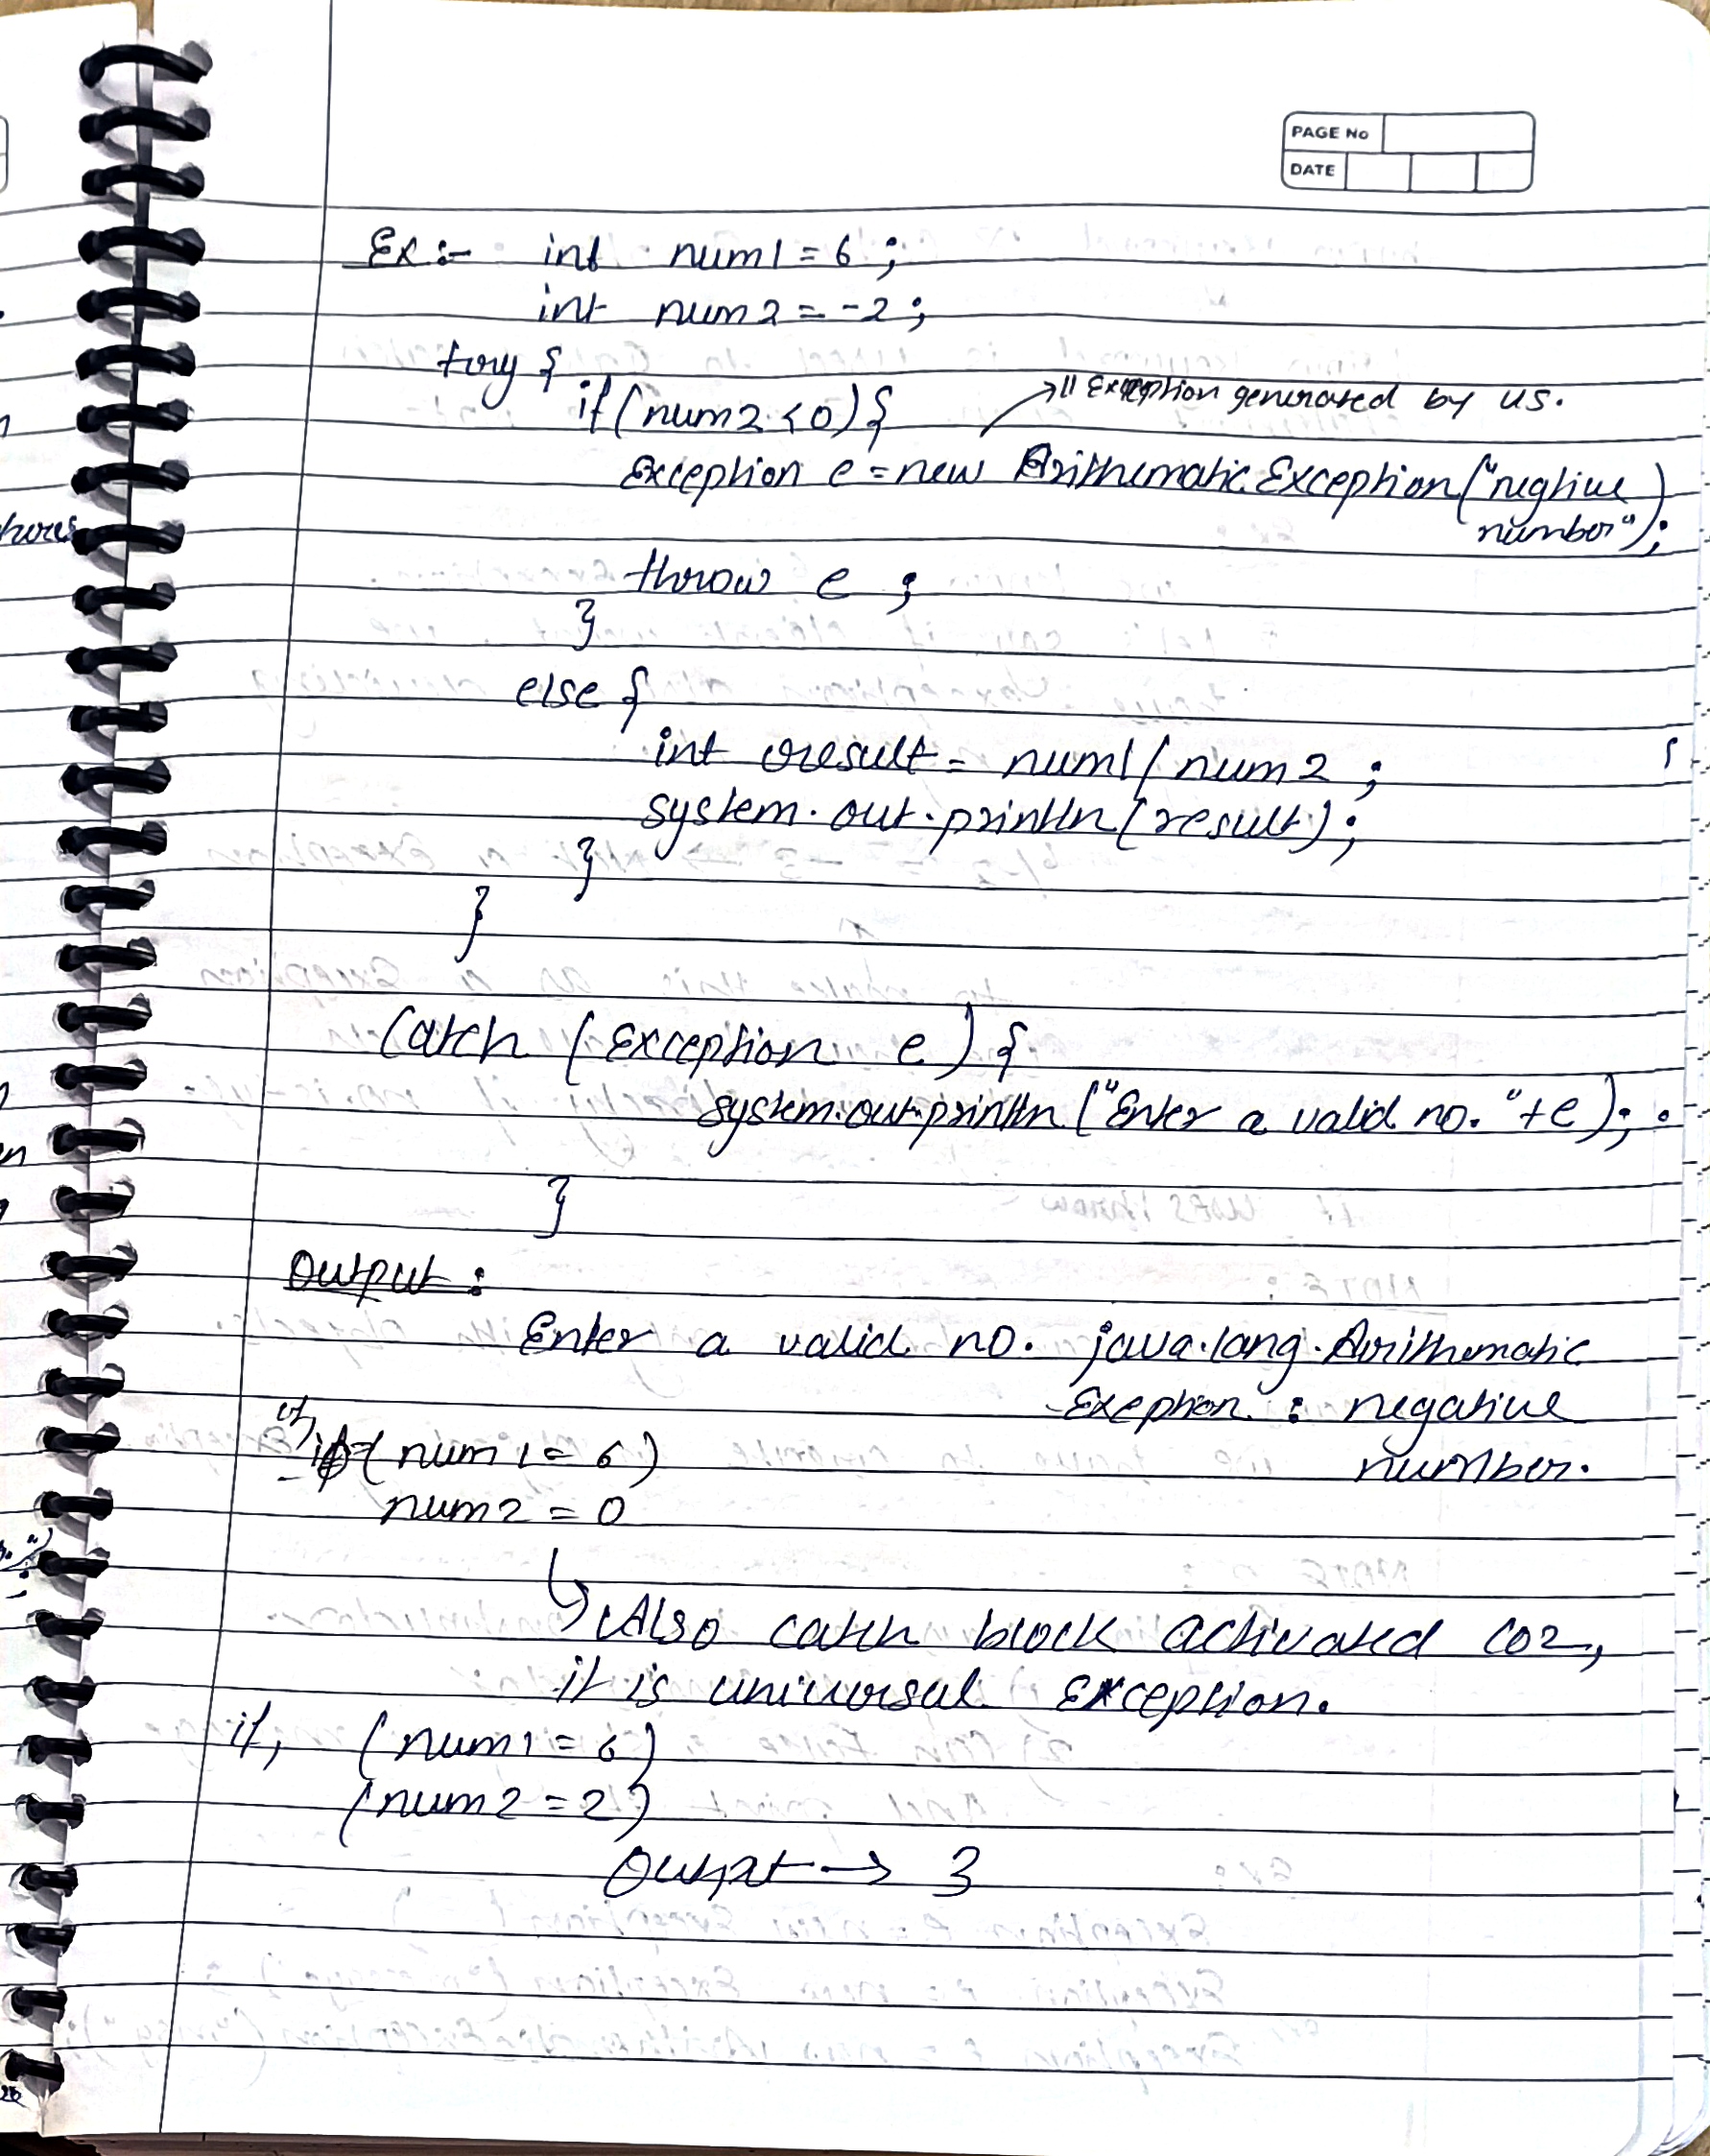 PAGE No
DATE
Ex :- int num1 = 6 ;
int num2 = -2 ;
try {
if (num2 < 0) {
// Exception generated by us.
Exception e = new ArithematicException("negtive
number");
throw e ;
}
else {
int result = num1 / num2 ;
system.out.println(result);
}
}
Catch (Exception e) {
system.out.println("Enter a valid no. "+e);
}
Output :
Enter a valid no. java.lang.Arithematic
Exeption : negative
number.
if,
(num1 = 6)
num2 = 0
Also catch block activated coz,
it is universal Exception.
if, (num1 = 6)
(num2 = 2)
Output → 3